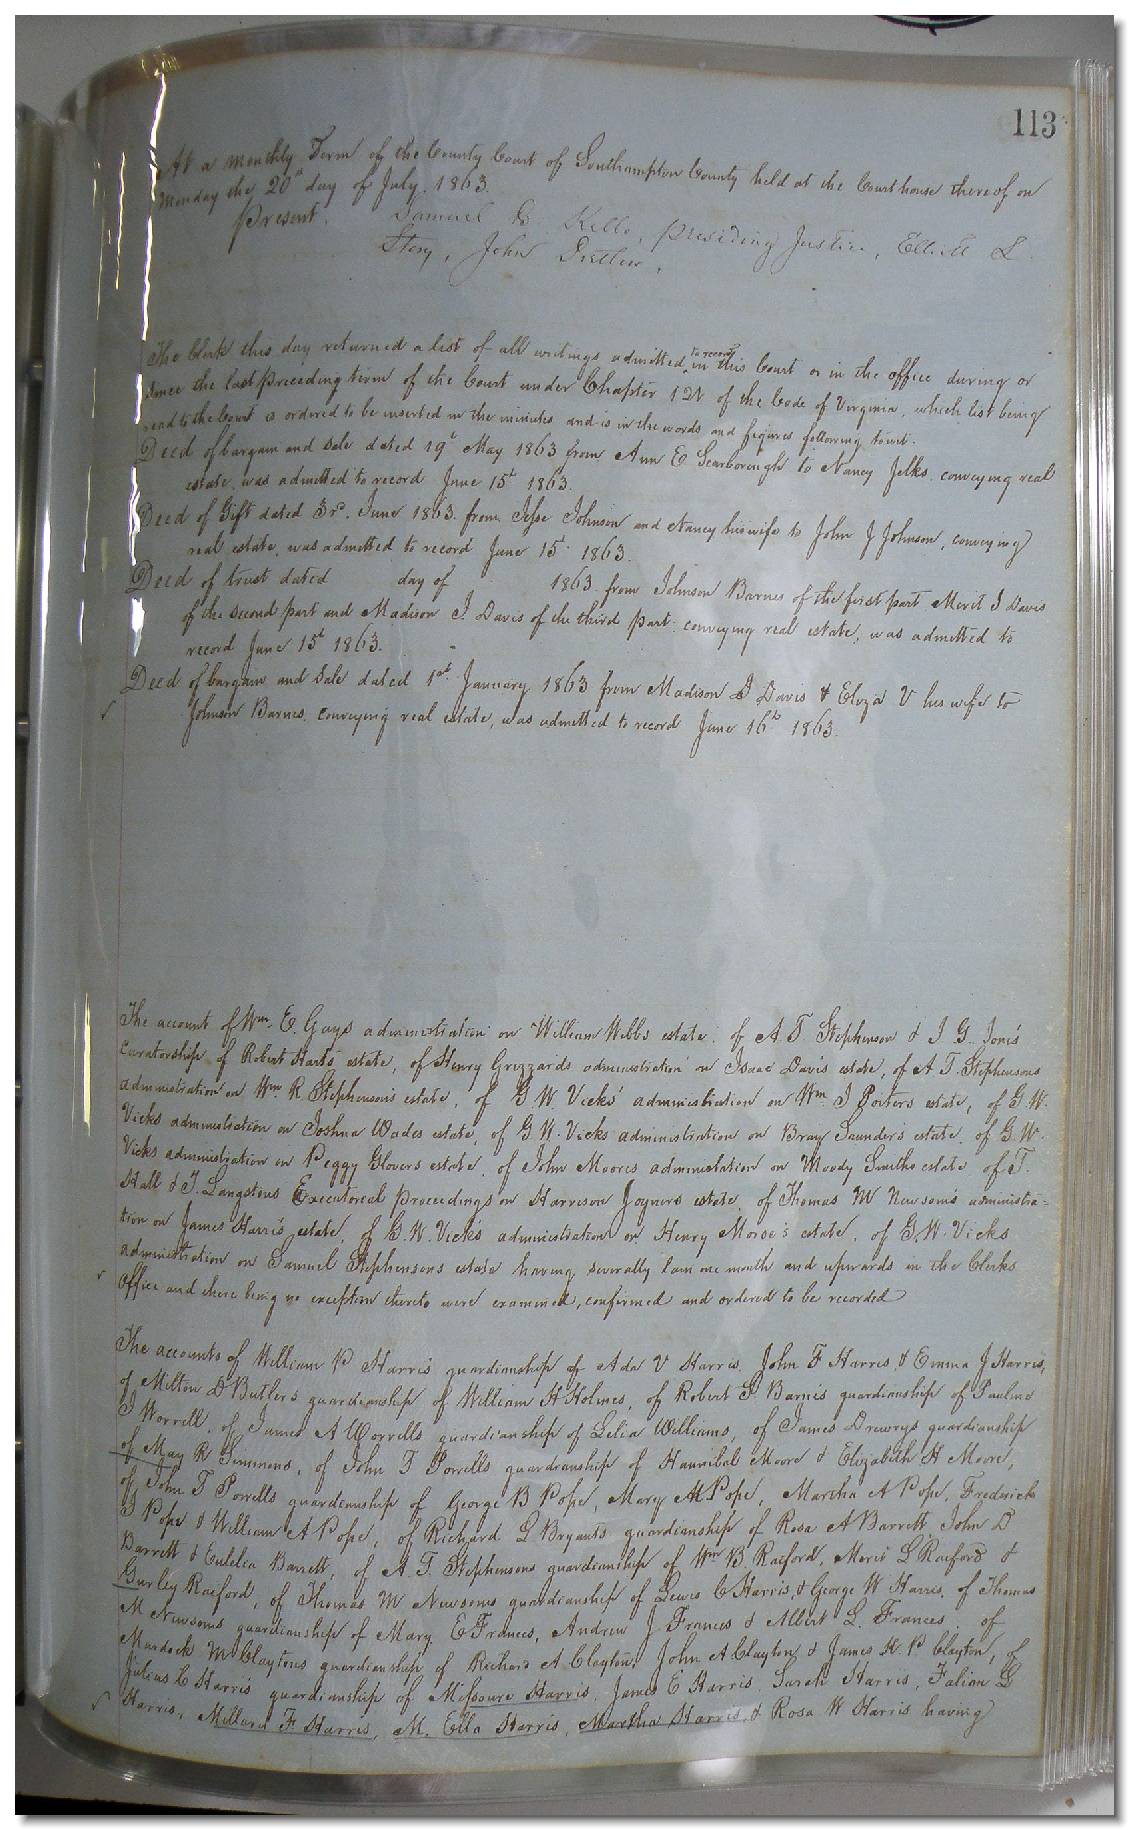 113
At a monthly Term of the County Court of Southampton County held at the Courthouse thereof on
Monday the 20th day of July. 1863.
Present. Samuel B. Kello, presiding Justice, Elliott L.
Story, John Pretlow.
The Clerk this day returned a list of all writings admitted to record in this Court or in the office during or
since the last preceding term of the Court under Chapter 121 of the Code of Virginia, which list being
read to the Court is ordered to be inserted in the minutes and is in the words and figures following towit.
Deed of bargain and sale dated 19t May 1863 from Ann E Scarborough to Nancy Jelks conveying real
estate, was admitted to record June 15t 1863.
Deed of Gift dated 3rd. June 1863. from Jesse Johnson and Nancy his wife to John J Johnson, conveying
real estate, was admitted to record June 15t 1863.
Deed of trust dated day of 1863 from Johnson Barnes of the first part Merit J Davis
of the second part and Madison J. Davis of the third part conveying real estate, was admitted to
record June 15t 1863.
Deed of bargain and Sale dated 1st January 1863 from Madison J Davis & Eliza V his wife to
Johnson Barnes, conveying real estate, was admitted to record June 16th 1863.
The account of Wm. E. Gays administration on William Webbs estate, of A T Stephenson & J G Jones
Curatorship of Robert Harts estate, of Henry Grizzards administration on Isaac Davis estate, of A T. Stephensons
administration on Wm R. Stephensons estate, of G W. Vicks' administration on Wm J Porters estate, of G. W.
Vicks administration on Joshua Wades estate, of G. W. Vicks administration on Bray Saunders estate, of G. W.
Vicks administration on Peggy Glovers estate, of John Moores administration on Moody Smiths estate of T.
Hall & J. Langstons Executorial proceedings on Harrison Joyners estate, of Thomas W Newsoms administra-
tion on James Harris estate, of G. W. Vicks administration on Henry Morse's estate, of G. W. Vicks
administration on Samuel Stephensons estate having severally lain one month and upwards in the Clerks
Office and there being no exception thereto were examined, confirmed and ordered to be recorded
The accounts of William P Harris guardianship of Ada V Harris, John F Harris, & Emma J Harris,
of Milton D Butlers guardianship of William H Holmes, of Robert S Barnes guardianship of Pauline
J Worrell, of James A Worrells guardianship of Lelia Williams, of James Drewrys guardianship
of May R Simmons, of John T Porrells guardianship of Hannibal Moore & Elizabeth H Moore,
of John T Porrells guardianship of George B Pope, Mary A Pope, Martha A Pope, Fredrick
J Pope & William A Pope, of Richard L Bryants guardianship of Rosa A Barrett, John D
Barrett & Eulelia Barrett, of A. T. Stephensons guardianship of Wm B. Raiford, Merit L Raiford &
Gurley Raiford, of Thomas W Newsoms guardianship of Lewis C Harris & George W Harris, of Thomas
M Newsoms guardianship of Mary E Frances, Andrew J. Frances & Albert L. Frances, of
Murdock McClaytons guardianship of Richard A Clayton, John A Clayton & James H. P. Clayton, of
Julius C Harris guardianship of Missoure Harris, James E Harris, Sarah Harris, Fabian G
Harris, Millard F Harris, M. Ella Harris, Martha Harris, & Rosa W Harris having